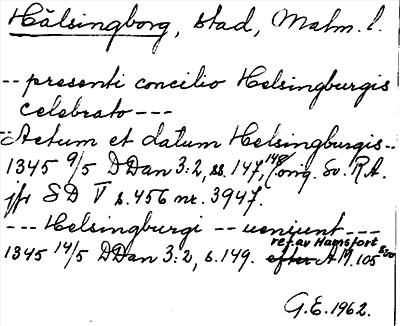 Hälsingborg, stad, Malm. l.
-- presenti concilio Helsingburgis
celebrato ---
-- Actum et datum Helsingburgis --
1345 9/5 DDan 3:2, ss. 147, 148 (orig. Sv. R.A.
jfr SD V s. 456 nr. 3947.
--- Helsingburgi -- veniunt ---
ref. av Hamsfort
1345 14/5 DDan 3:2, s. 149. efter A.M. 105
G.E. 1962.